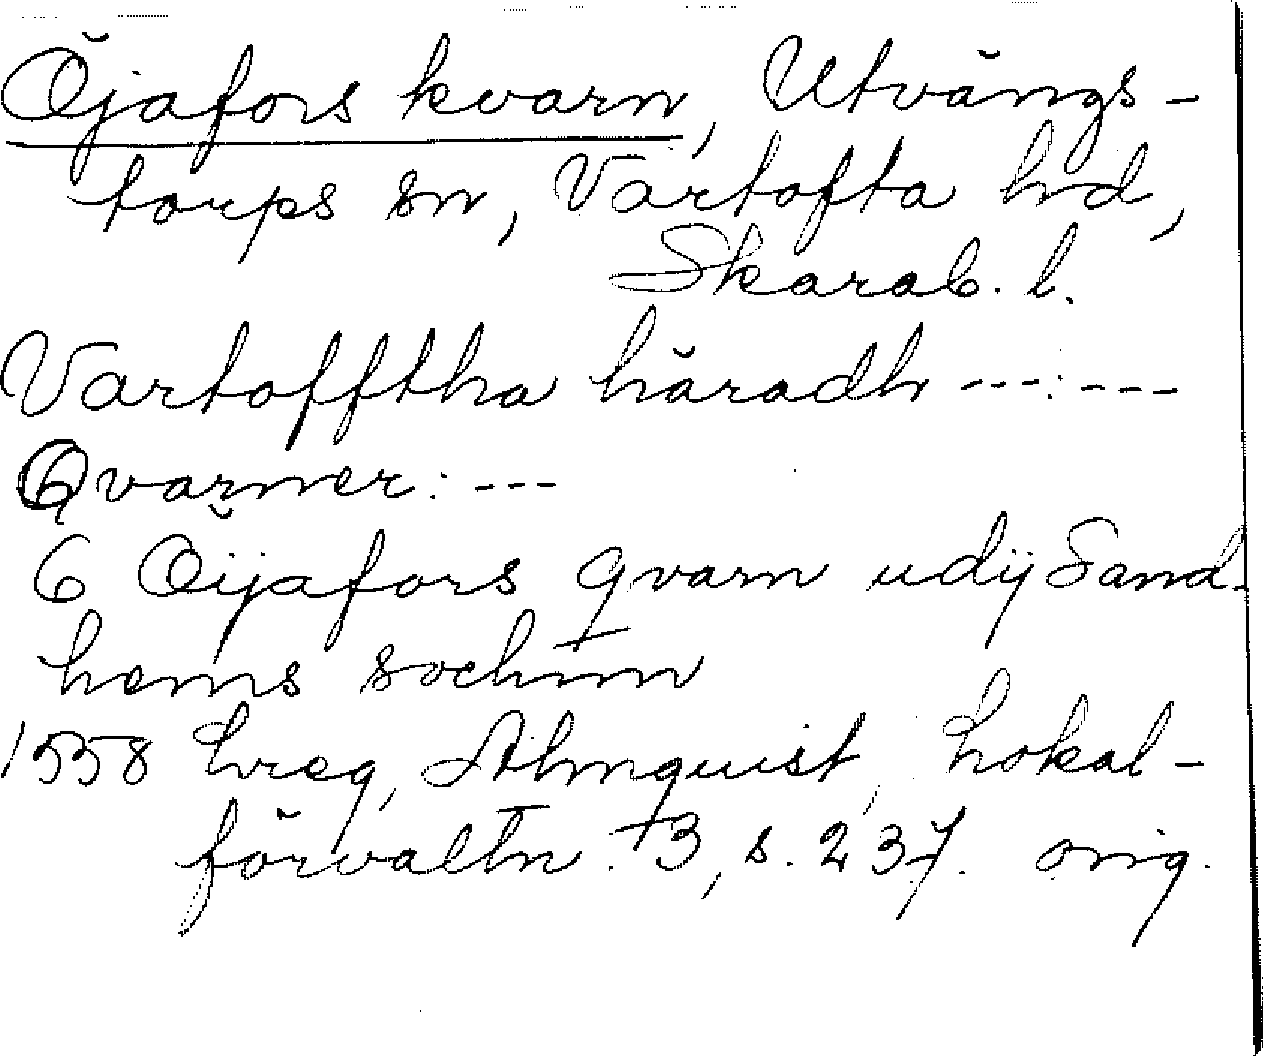 Öjafors kvarn, Utvängs-
torps sn, Vartofta hd,
Skarab. l.
Vartofftha häradh ---:---
Qvarner: ---
6 Öijafors qvarn udij Sand-
hems sochnn
1558 Lreg, Almquist, Lokal-
förvaltn. 3, s. 237. orig.